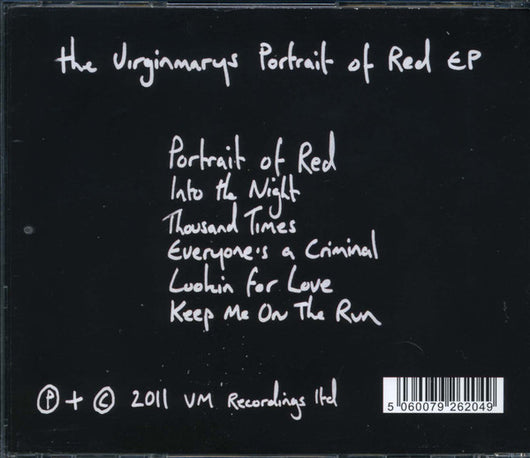 the Virginmarys Portrait of Red EP
Portrait of Red
Into the Night
Thousand Times
Everyone's a Criminal
Lookin for Love
Keep Me On The Run
℗ + © 2011 VM Recordings ltd
5 060079 262049